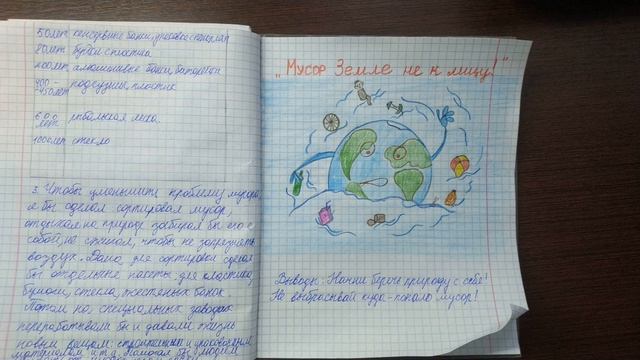 50 лет консервные банки,
80 лет бутыли пластика
100 лет алюминиевые банки, батарейки
400 - подгузники, пластик
450 лет
600 лет рибальская леска
1000 лет стекло
3. Чтобы уменьшить проблему мусора,
я бы сделал сортировал мусор,
отдыхая на природе забирал бы его с
собой, не сжигал, чтобы не загрязнять
воздух. Дома для сортировки сделал
бы отдельные пакеты для пластика,
бумаги, стекла, жестяных банок
Потом на специальных заводах
перерабатывали бы и давали жизнь
новым вещам: строительным и упаковочным
материалам и т.д.
„Мусор Земле не к лицу!"
Выводы: Начни беречь природу с себя!
Не выбрасывай куда-попало мусор!